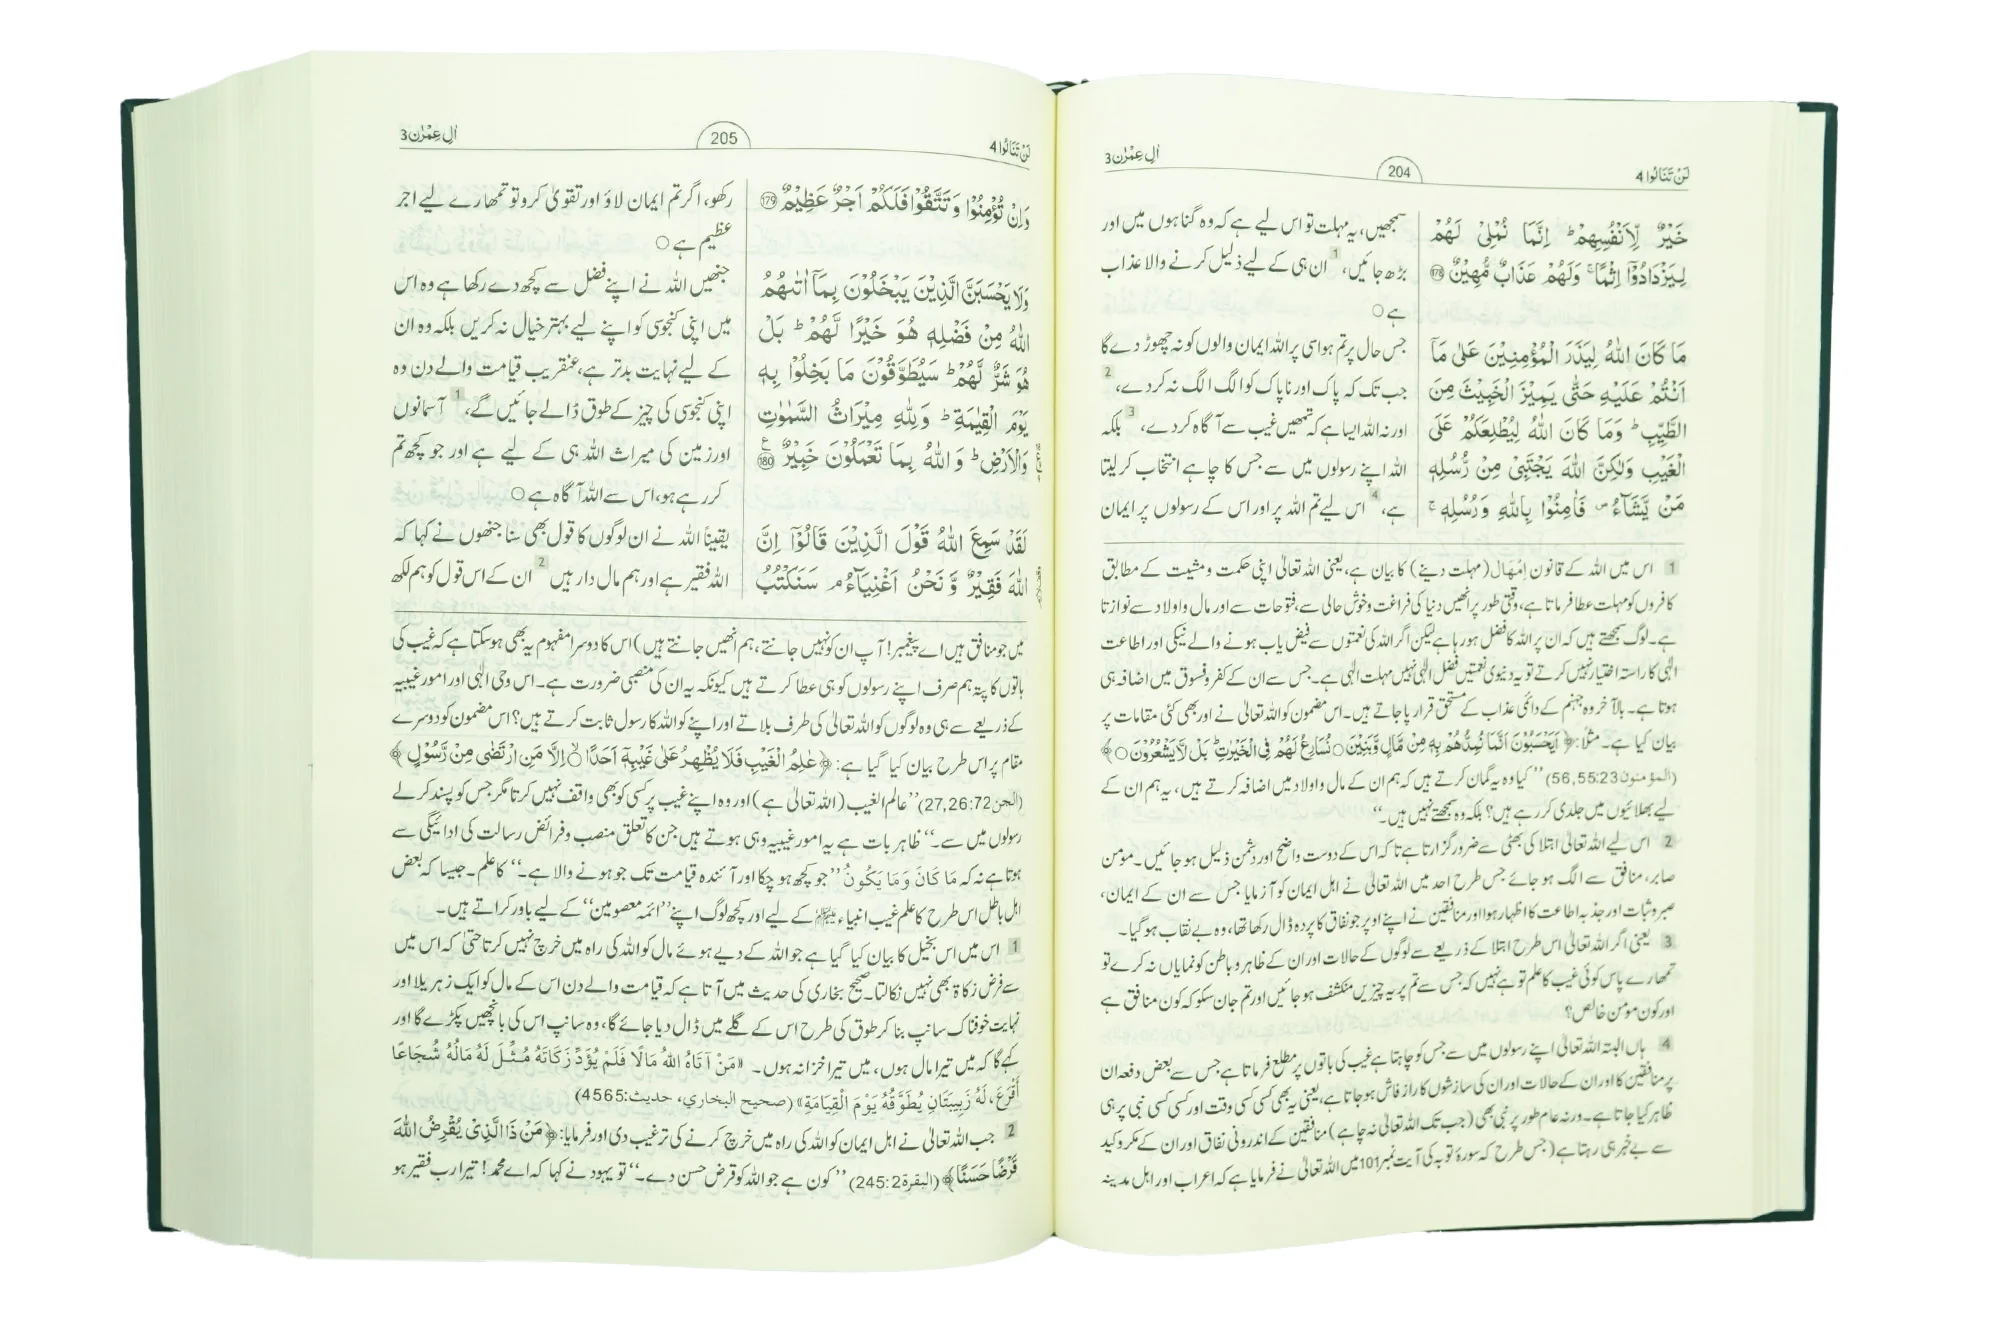 لَنْ تَنَالُوا 4
204
اٰلِ عِمْرٰن 3
خَيْرٌ لِّاَنْفُسِهِمْ ؕ اِنَّمَا نُمْلِىْ لَهُمْ
لِيَزْدَادُوْٓا اِثْمًا ۚ وَلَهُمْ عَذَابٌ مُّهِيْنٌ 178
مَا كَانَ اللّٰهُ لِيَذَرَ الْمُؤْمِنِيْنَ عَلٰى مَآ
اَنْتُمْ عَلَيْهِ حَتّٰى يَمِيْزَ الْخَبِيْثَ مِنَ
الطَّيِّبِ ؕ وَمَا كَانَ اللّٰهُ لِيُطْلِعَكُمْ عَلَى
الْغَيْبِ وَلٰكِنَّ اللّٰهَ يَجْتَبِىْ مِنْ رُّسُلِهٖ
مَنْ يَّشَآءُ ۪ فَاٰمِنُوْا بِاللّٰهِ وَرُسُلِهٖ ۚ
سمجھیں، یہ مہلت تو اس لیے ہے کہ وہ گناہوں میں اور
بڑھ جائیں، 1 ان ہی کے لیے ذلیل کرنے والا عذاب
ہے ○
جس حال پر تم ہو اسی پر اللہ ایمان والوں کو نہ چھوڑ دے گا
جب تک کہ پاک اور ناپاک کو الگ الگ نہ کر دے، 2
اور نہ اللہ ایسا ہے کہ تمھیں غیب سے آگاہ کر دے، 3 بلکہ
اللہ اپنے رسولوں میں سے جس کا چاہے انتخاب کر لیتا
ہے، 4 اس لیے تم اللہ پر اور اس کے رسولوں پر ایمان
1 اس میں اللہ کے قانون اِمْهَال (مہلت دینے) کا بیان ہے، یعنی اللہ تعالیٰ اپنی حکمت و مشیت کے مطابق
کافروں کو مہلت عطا فرماتا ہے، وقتی طور پر انھیں دنیا کی فراغت و خوش حالی سے، فتوحات سے اور مال و اولاد سے نوازتا
ہے۔ لوگ سمجھتے ہیں کہ ان پر اللہ کا فضل ہو رہا ہے لیکن اگر اللہ کی نعمتوں سے فیض یاب ہونے والے نیکی اور اطاعت
الٰہی کا راستہ اختیار نہیں کرتے تو یہ دنیوی نعمتیں فضل الٰہی نہیں مہلت الٰہی ہے۔ جس سے ان کے کفر و فسوق میں اضافہ ہی
ہوتا ہے۔ بالآخر وہ جہنم کے دائمی عذاب کے مستحق قرار پا جاتے ہیں۔ اس مضمون کو اللہ تعالیٰ نے اور بھی کئی مقامات پر
بیان کیا ہے۔ مثلاً: ﴿اَيَحْسَبُوْنَ اَنَّمَا نُمِدُّهُمْ بِهٖ مِنْ مَّالٍ وَّبَنِيْنَ ○ نُسَارِعُ لَهُمْ فِى الْخَيْرٰتِ ؕ بَلْ لَّا يَشْعُرُوْنَ ○﴾
(المؤمنون 23:56,55) ''کیا وہ یہ گمان کرتے ہیں کہ ہم ان کے مال و اولاد میں اضافہ کرتے ہیں، یہ ہم ان کے
لیے بھلائیوں میں جلدی کر رہے ہیں؟ بلکہ وہ سمجھتے نہیں ہیں۔''
2 اس لیے اللہ تعالیٰ ابتلا کی بھٹی سے ضرور گزارتا ہے تاکہ اس کے دوست واضح اور دشمن ذلیل ہو جائیں۔ مومن
صابر، منافق سے الگ ہو جائے جس طرح احد میں اللہ تعالیٰ نے اہل ایمان کو آزمایا جس سے ان کے ایمان،
صبر و ثبات اور جذبۂ اطاعت کا اظہار ہوا اور منافقین نے اپنے اوپر جو نفاق کا پردہ ڈال رکھا تھا، وہ بے نقاب ہو گیا۔
3 یعنی اگر اللہ تعالیٰ اس طرح ابتلا کے ذریعے سے لوگوں کے حالات اور ان کے ظاہر و باطن کو نمایاں نہ کرے تو
تمھارے پاس کوئی غیب کا علم تو ہے نہیں کہ جس سے تم پر یہ چیزیں منکشف ہو جائیں اور تم جان سکو کہ کون منافق ہے
اور کون مومن خالص؟
4 ہاں البتہ اللہ تعالیٰ اپنے رسولوں میں سے جس کو چاہتا ہے غیب کی باتوں پر مطلع فرماتا ہے جس سے بعض دفعہ ان
پر منافقین کا اور ان کے حالات اور ان کی سازشوں کا راز فاش ہو جاتا ہے، یعنی یہ بھی کسی کسی وقت اور کسی کسی نبی پر ہی
ظاہر کیا جاتا ہے۔ ورنہ عام طور پر نبی بھی (جب تک اللہ تعالیٰ نہ چاہے) منافقین کے اندرونی نفاق اور ان کے مکر و کید
سے بے خبر ہی رہتا ہے (جس طرح کہ سورۂ توبہ کی آیت نمبر 101 میں اللہ تعالیٰ نے فرمایا ہے کہ اعراب اور اہل مدینہ
لَنْ تَنَالُوا 4
205
اٰلِ عِمْرٰن 3
وَاِنْ تُؤْمِنُوْا وَتَتَّقُوْا فَلَكُمْ اَجْرٌ عَظِيْمٌ 179
وَلَا يَحْسَبَنَّ الَّذِيْنَ يَبْخَلُوْنَ بِمَآ اٰتٰىهُمُ
اللّٰهُ مِنْ فَضْلِهٖ هُوَ خَيْرًا لَّهُمْ ؕ بَلْ
هُوَ شَرٌّ لَّهُمْ ؕ سَيُطَوَّقُوْنَ مَا بَخِلُوْا بِهٖ
يَوْمَ الْقِيٰمَةِ ؕ وَلِلّٰهِ مِيْرَاثُ السَّمٰوٰتِ
وَالْاَرْضِ ؕ وَاللّٰهُ بِمَا تَعْمَلُوْنَ خَبِيْرٌ ع 180
لَقَدْ سَمِعَ اللّٰهُ قَوْلَ الَّذِيْنَ قَالُوْٓا اِنَّ
اللّٰهَ فَقِيْرٌ وَّنَحْنُ اَغْنِيَآءُ ۘ سَنَكْتُبُ
رکھو، اگر تم ایمان لاؤ اور تقویٰ کرو تو تمھارے لیے اجر
عظیم ہے ○
جنھیں اللہ نے اپنے فضل سے کچھ دے رکھا ہے وہ اس
میں اپنی کنجوسی کو اپنے لیے بہتر خیال نہ کریں بلکہ وہ ان
کے لیے نہایت بدتر ہے، عنقریب قیامت والے دن وہ
اپنی کنجوسی کی چیز کے طوق ڈالے جائیں گے، 1 آسمانوں
اور زمین کی میراث اللہ ہی کے لیے ہے اور جو کچھ تم
کر رہے ہو، اس سے اللہ آگاہ ہے ○
یقیناً اللہ نے ان لوگوں کا قول بھی سنا جنھوں نے کہا کہ
اللہ فقیر ہے اور ہم مال دار ہیں 2 ان کے اس قول کو ہم لکھ
میں جو منافق ہیں اے پیغمبر! آپ ان کو نہیں جانتے، ہم انھیں جانتے ہیں) اس کا دوسرا مفہوم یہ بھی ہو سکتا ہے کہ غیب کی
باتوں کا پتہ ہم صرف اپنے رسولوں کو ہی عطا کرتے ہیں کیونکہ یہ ان کی منصبی ضرورت ہے۔ اس وحی الٰہی اور امور غیبیہ
کے ذریعے سے ہی وہ لوگوں کو اللہ تعالیٰ کی طرف بلاتے اور اپنے کو اللہ کا رسول ثابت کرتے ہیں؟ اس مضمون کو دوسرے
مقام پر اس طرح بیان کیا گیا ہے: ﴿عٰلِمُ الْغَيْبِ فَلَا يُظْهِرُ عَلٰى غَيْبِهٖٓ اَحَدًا ○ اِلَّا مَنِ ارْتَضٰى مِنْ رَّسُوْلٍ﴾
(الجن 72:27,26) ''عالم الغیب (اللہ تعالیٰ ہے) اور وہ اپنے غیب پر کسی کو بھی واقف نہیں کرتا مگر جس کو پسند کر لے
رسولوں میں سے۔'' ظاہر بات ہے یہ امور غیبیہ وہی ہوتے ہیں جن کا تعلق منصب و فرائض رسالت کی ادائیگی سے
ہوتا ہے نہ کہ مَا كَانَ وَمَا يَكُونُ ''جو کچھ ہو چکا اور آئندہ قیامت تک جو ہونے والا ہے۔'' کا علم۔ جیسا کہ بعض
اہل باطل اس طرح کا علم غیب انبیاء کے لیے اور کچھ لوگ اپنے ''ائمہ معصومین'' کے لیے باور کراتے ہیں۔
1 اس میں اس بخیل کا بیان کیا گیا ہے جو اللہ کے دیے ہوئے مال کو اللہ کی راہ میں خرچ نہیں کرتا حتیٰ کہ اس میں
سے فرض زکاۃ بھی نہیں نکالتا۔ صحیح بخاری کی حدیث میں آتا ہے کہ قیامت والے دن اس کے مال کو ایک زہریلا اور
نہایت خوفناک سانپ بنا کر طوق کی طرح اس کے گلے میں ڈال دیا جائے گا، وہ سانپ اس کی بانچھیں پکڑے گا اور
کہے گا کہ میں تیرا مال ہوں، میں تیرا خزانہ ہوں۔ «مَنْ آتَاهُ اللّٰهُ مَالًا فَلَمْ يُؤَدِّ زَكَاتَهُ مُثِّلَ لَهُ مَالُهُ شُجَاعًا
أَقْرَعَ، لَهُ زَبِيبَتَانِ يُطَوَّقُهُ يَوْمَ الْقِيَامَةِ» (صحيح البخاري، حديث: 4565)
2 جب اللہ تعالیٰ نے اہل ایمان کو اللہ کی راہ میں خرچ کرنے کی ترغیب دی اور فرمایا: ﴿مَنْ ذَا الَّذِىْ يُقْرِضُ اللّٰهَ
قَرْضًا حَسَنًا﴾ (البقرة 2:245) ''کون ہے جو اللہ کو قرض حسن دے۔'' تو یہود نے کہا کہ اے محمد! تیرا رب فقیر ہو